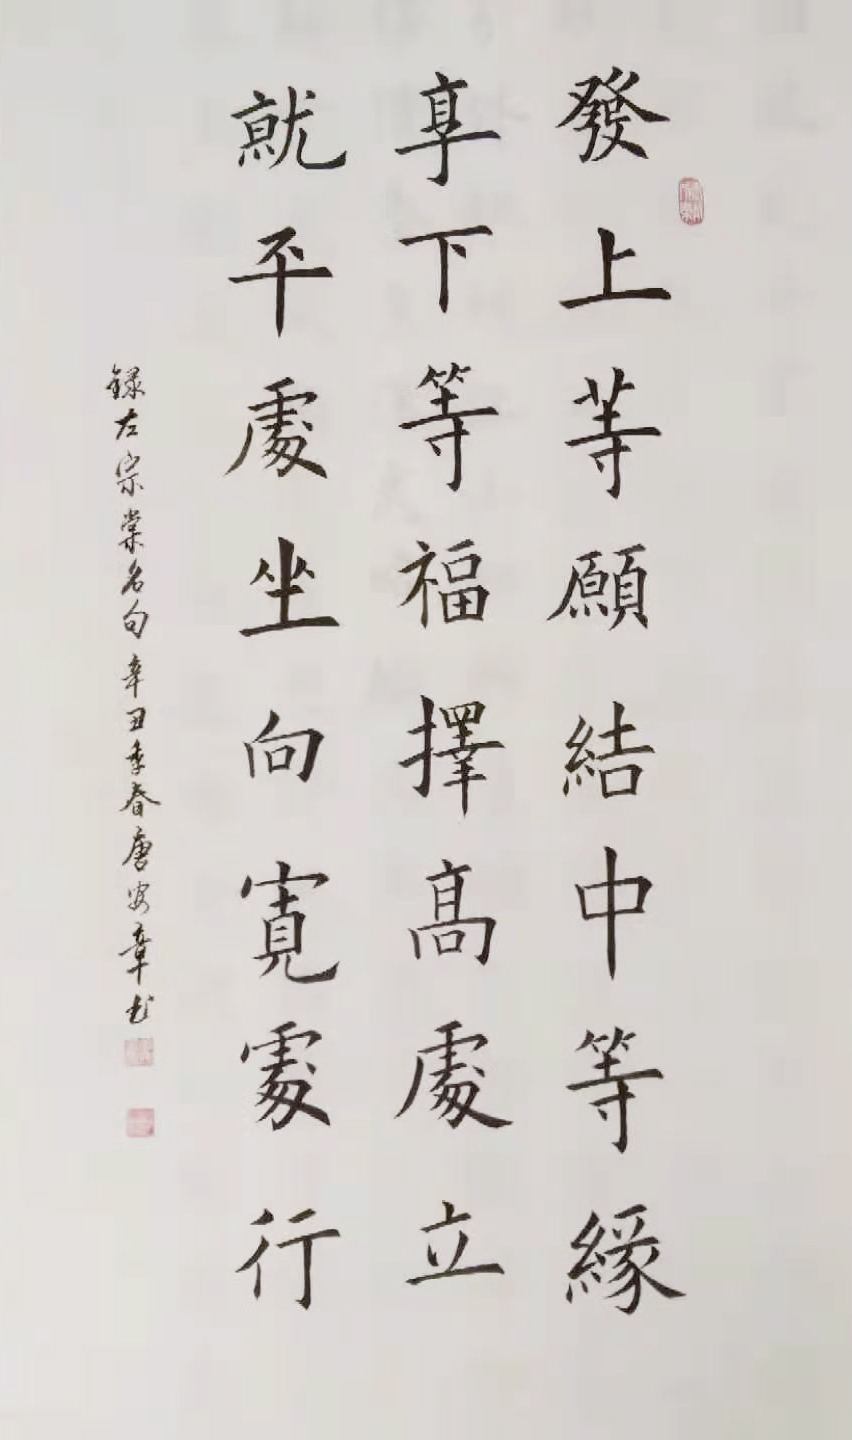 發上等願結中等緣
享下等福擇高處立
就平處坐向寬處行
録左宗棠名句辛丑季春唐安章书